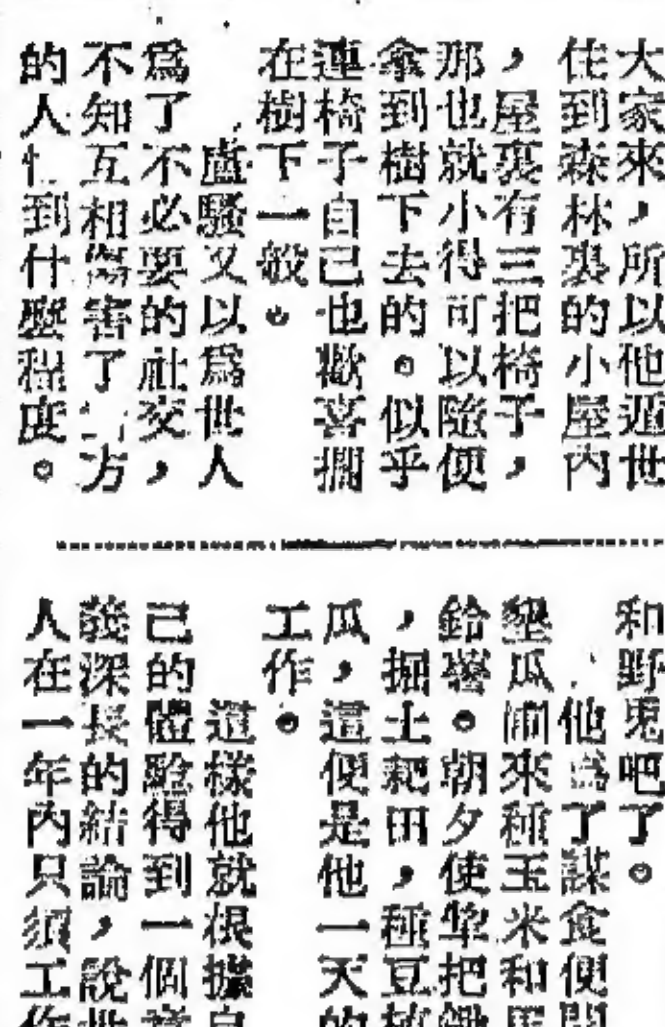 大家來，所以他遁世
住到森林裏的小屋內
，屋裏有三把椅子，
那也就小得可以隨便
拿到樹下去的。似乎
連椅子自己也歡喜擱
在樹下一般。
盧騷又以爲世人
爲了不必要的社交，
不知互相傷害了方
的人性到什麼程度。
和野兎吧了。
他爲了謀食便開
墾瓜圃來種玉米和馬
鈴薯。朝夕使犂把鋤
，掘土耙田，種豆植
瓜，這便是他一天的
工作。
這樣他就根據自
己的體驗得到一個意
義深長的結論，說世
人在一年內只須工作